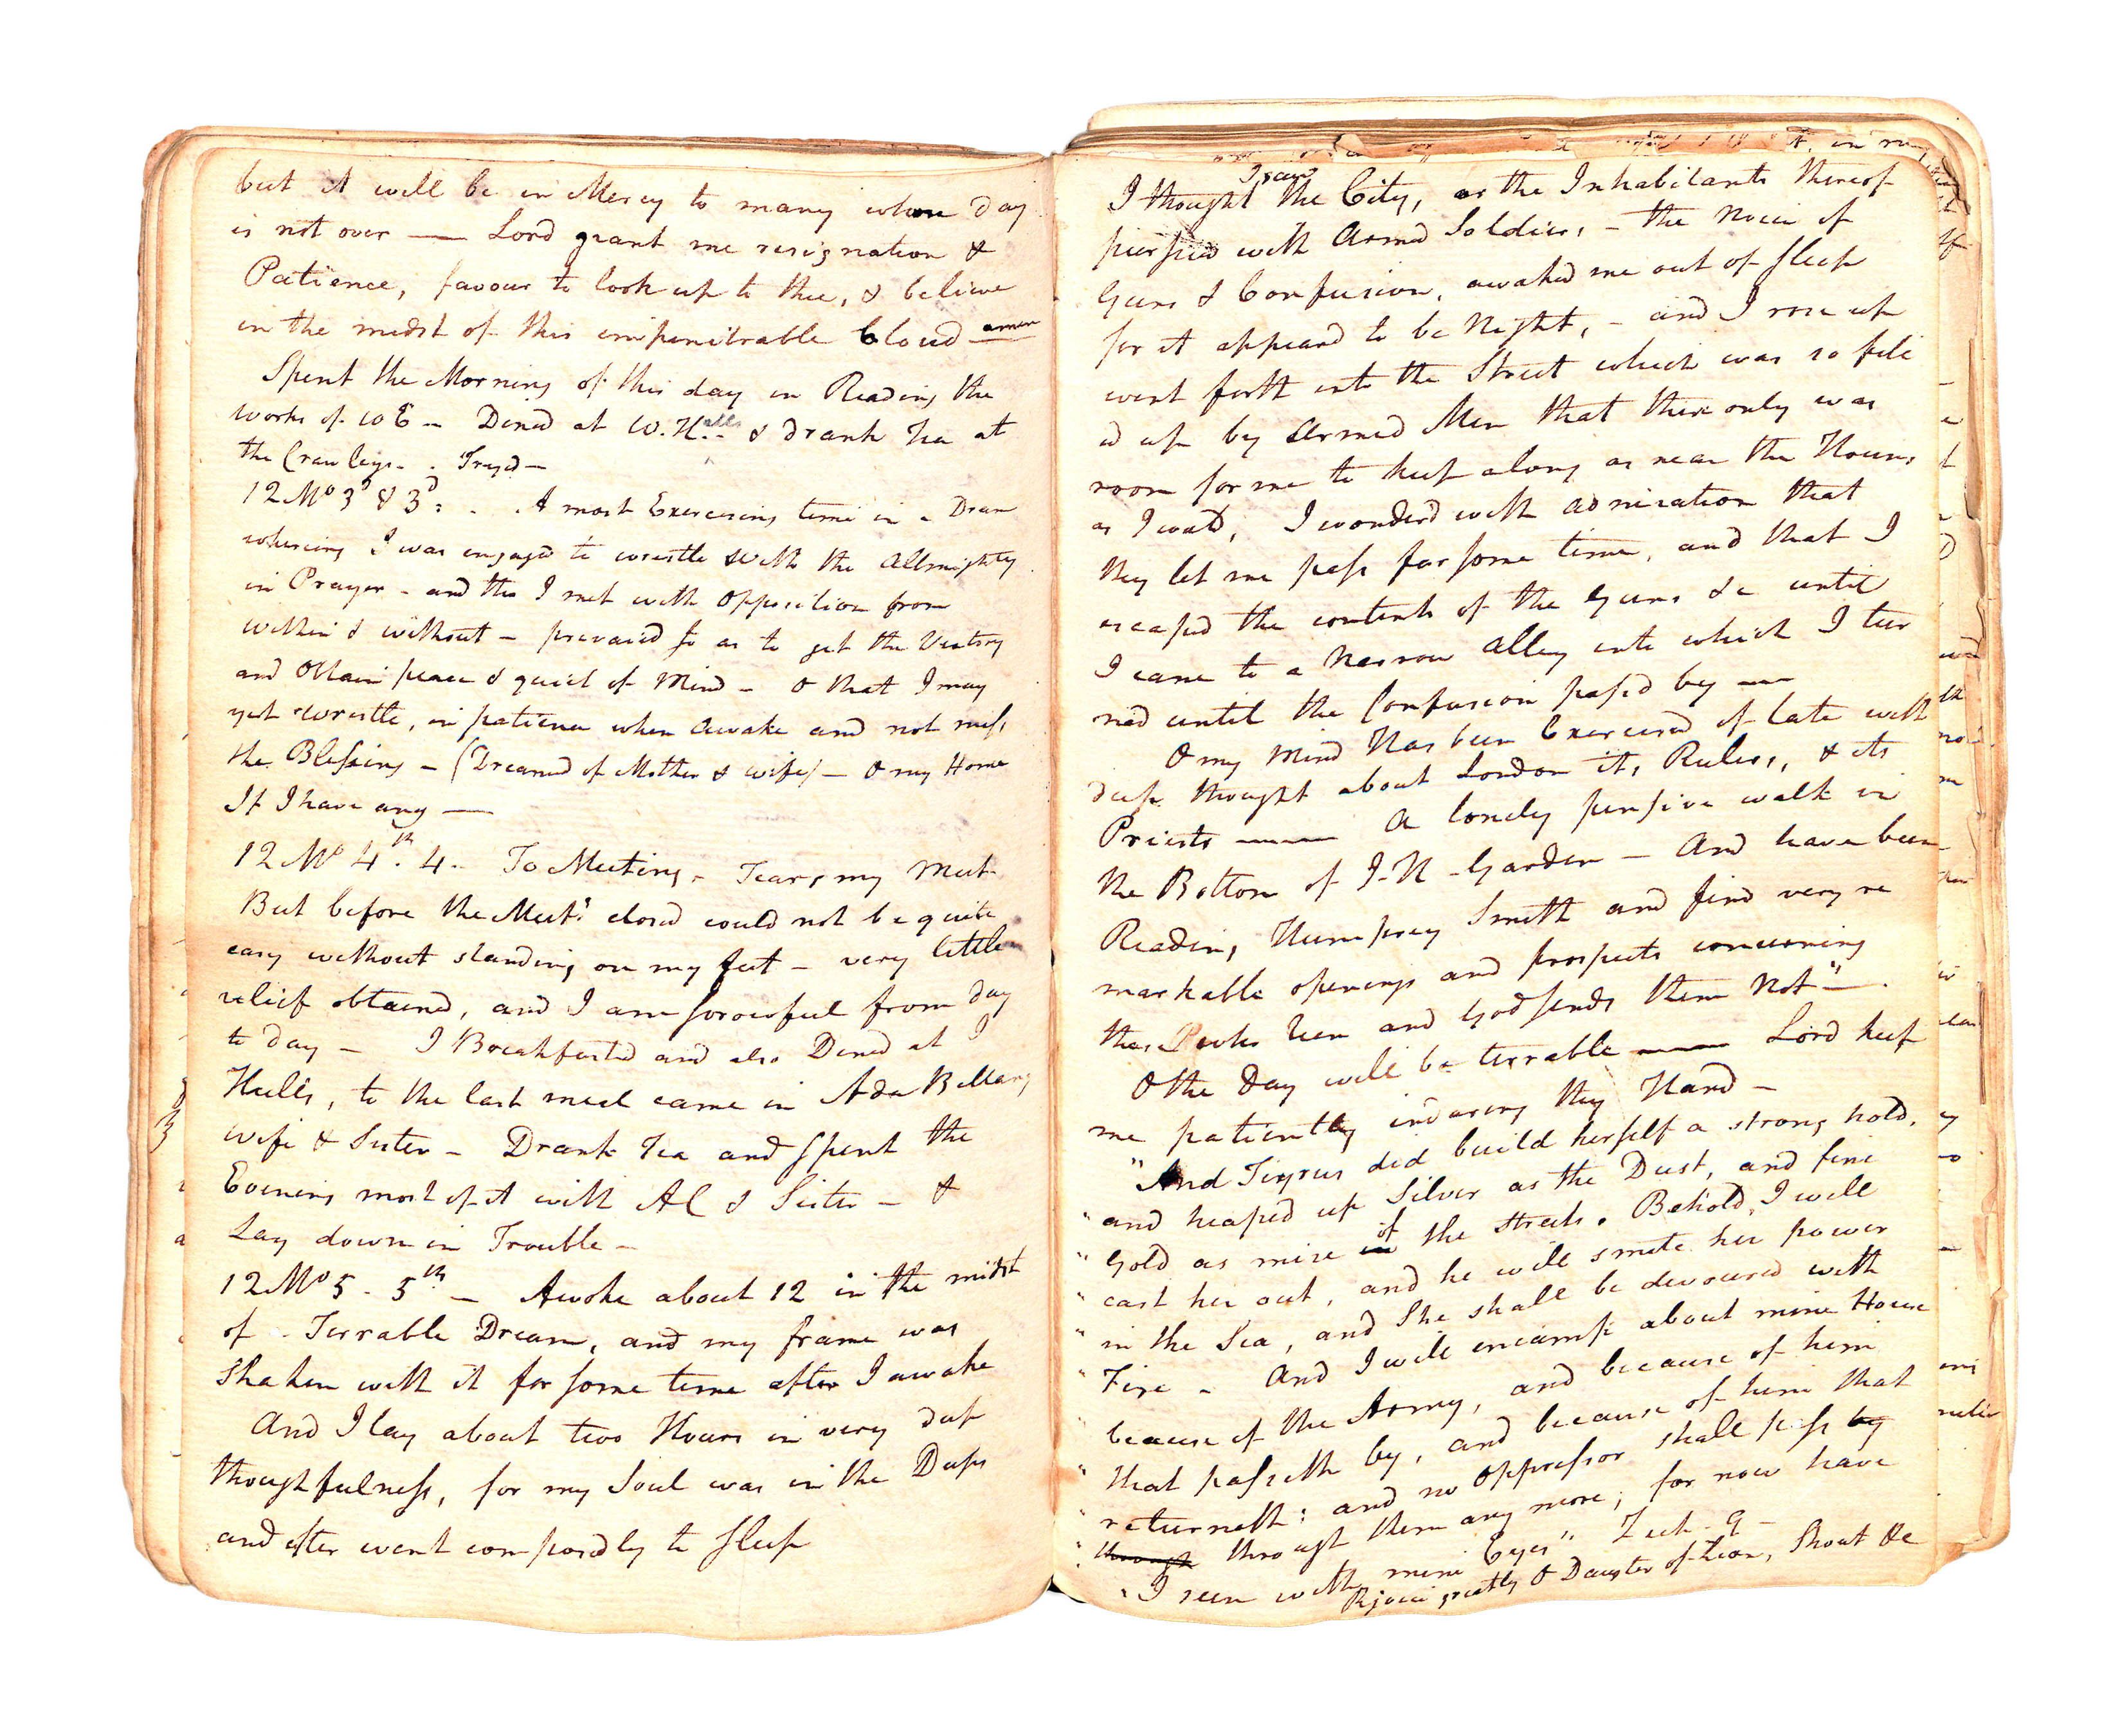 but it will be in Mercy to many whose day
is not over — Lord grant me resignation &
Patience, favour to look up to thee, & believe
in the midst of this impenitrable Cloud — amen
Spent the Morning of this day in Reading the
works of W E — Dined at W. Halls & drank Tea at
the Crawleys - .
12 Mo 3d & 3d: - . A most Exercising time in a Dream
whereing I was engaged to wrestle with the Allmighty
in Prayer - and tho I met with opposition from
within & without — prevaied so as to get the Victory
and Obtain peace & quiet of Mind — O that I may
yet wrestle, in patience when awake and not miss
the Blessing — (Dreamed of Mother & wife) — O my Home
If I have any —
12 Mo 4th. 4 - To Meeting - Tears my meat
But before the Meetg closed could not be quite
easy without standing on my feet — very little
relief obtained, and I am sorowful from day
to day — I Breakfasted and also Dined at I
Hulls, to the last meal came in Ada Bellang
wife & Sister — Drank Tea and spent the
Evening most of it with AC & Sister — &
Lay down in Trouble —
12 Mo 5 - 5th — Awoke about 12 in the midst
of - Terrable Dream, and my frame was
Shaken with it for some time after I awoke
And I lay about two Hours in very deep
thoughtfulness, for my Soul was in the Deeps
and after went composedly to sleep
I saw
I thought the City, or the Inhabitants thereof
piersied with Armed Soldiers, — the Noise of
Guns & Confusion, awaked me out of sleep
for it appeard to be Night, — and I rose up
went forth into the Street which was so fill
d up by Armed Men that there only was
room for me to keep along as near the Houses
as I could, I wonderd with admiration that
they let me pass for some time, and that I
escaped the contents of the Guns &c until
I came to a Narrow alley into which I tur
ned until the Confusion passd by —
O my Mind Has been Exercised of late with
deep thought about London its Rulers, & its
Priests — A lonely pensive walk in
the Bottom of I-H - Garden — And have been
Reading Humphrey Smith and find very re
markable openings and prospects concerning
these Peoples seen and God sends them Not" — .
O the Day will be terrable — Lord keep
me patiently induring thy Hand —
"And Tiyrus did build herself a strong hold,
" and heaped up Silver as the Dust, and fine
" Gold as mire in of the streets. Behold, I will
" cast her out, and he will smite her power
" in the Sea, and She shall be devoured with
" Fire - And I will encamp about mine House
" because of the Army, and because of him
" that passeth by, and because of him that
" returneth: and no oppressor shall pass by
" through through them any more; for now have
" I seen with mine Eyes" Zech - 9 -
Rejoice greatly O Daugter of Zion, Shout &c